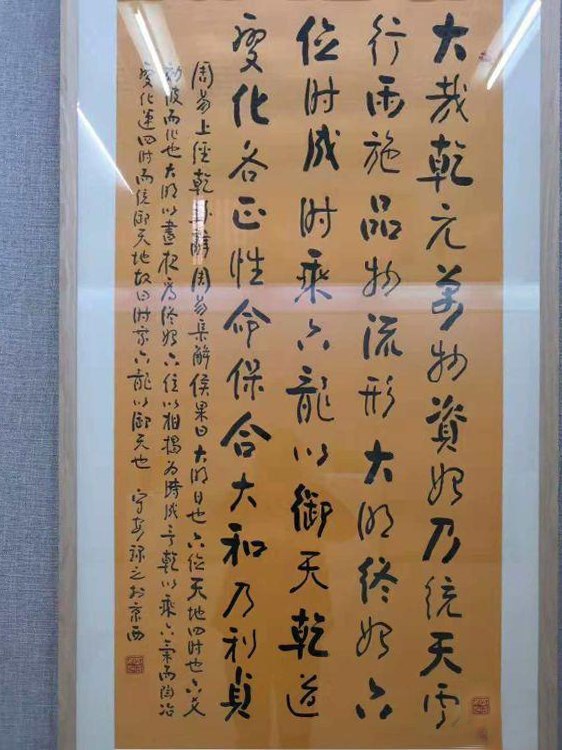 大哉乾元萬物資始乃統天雲
行雨施品物流形大明終始六
位时成时乘六龍以御天乾道
變化各正性命保合大和乃利貞
周易上經乾彖辭周易集解侯果曰大明日也六位天地四时也六爻
効彼而作也大明以晝夜為終始六位以相揭為時成言乾以乘六氣而陶冶
變化運四时而統御天地故曰时乘六龍以御天也 錄之於京西